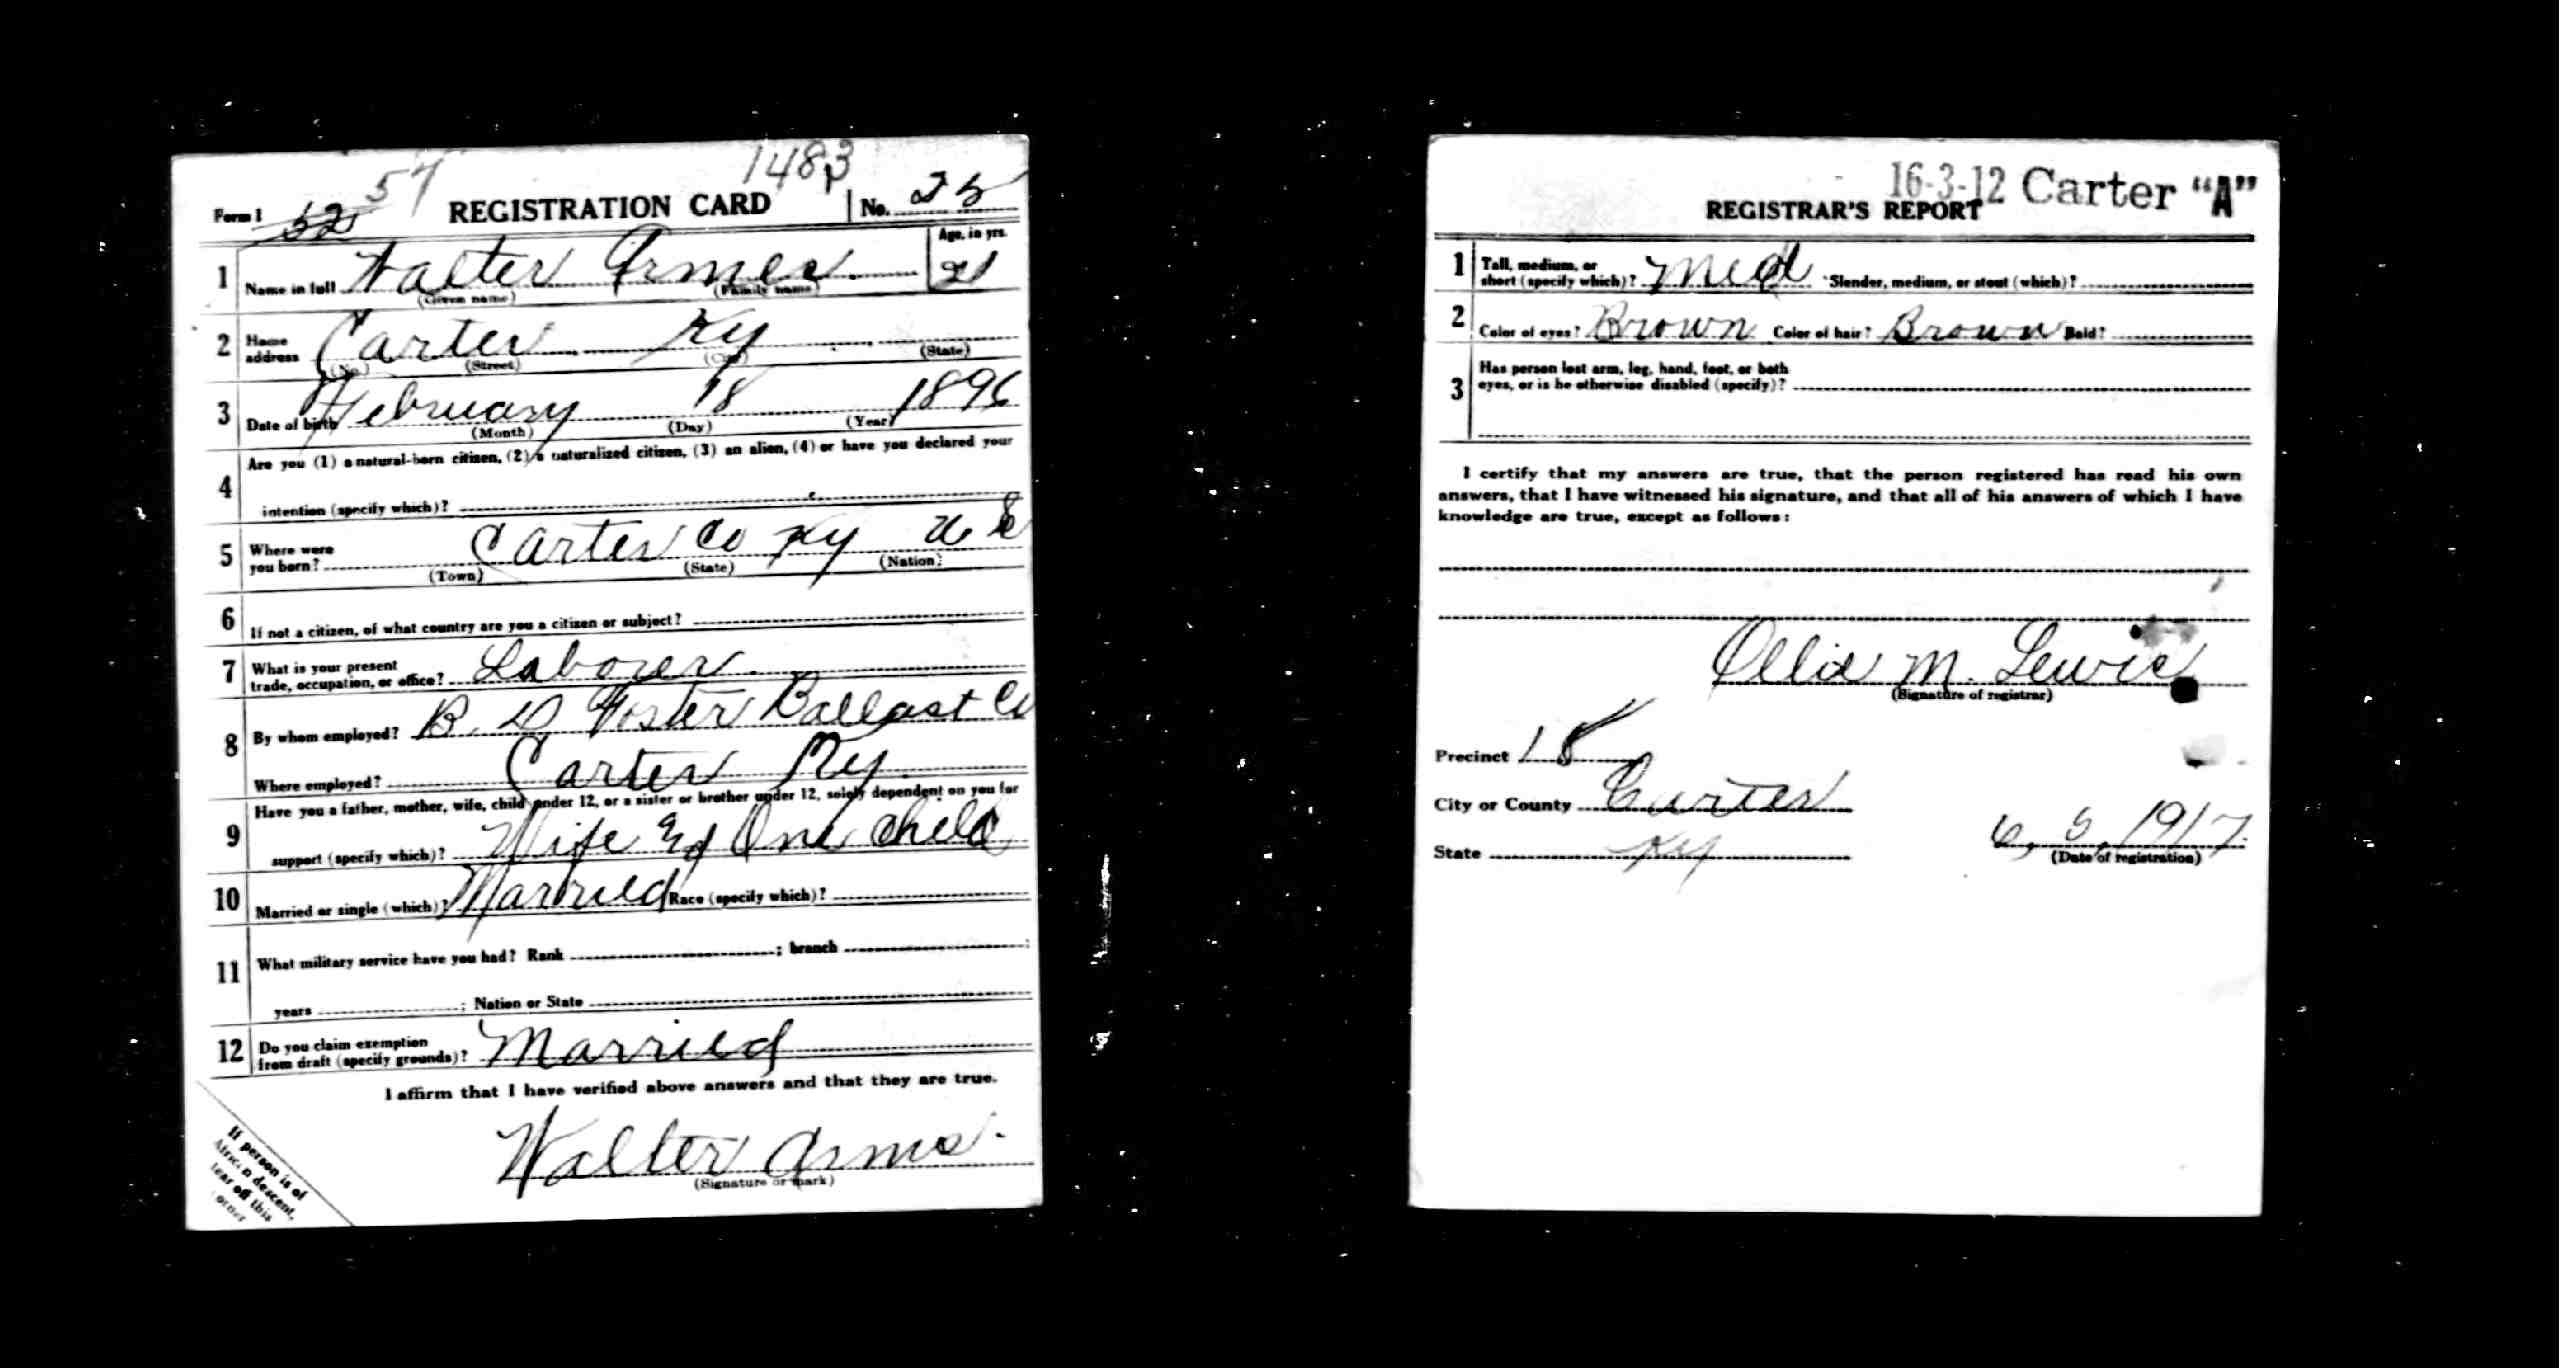 1483
57
Form 1 52 REGISTRATION CARD No. 25
1 Name in full Walter Armes Age, in yrs. 21
(Given name) (Family name)
2 Home address Carter Ky
(No.) (Street) (City) (State)
3 Date of birth February 18 1896
(Month) (Day) (Year)
4 Are you (1) a natural-born citizen, (2) a naturalized citizen, (3) an alien, (4) or have you declared your
intention (specify which)?
5 Where were you born? Carter Co Ky U S
(Town) (State) (Nation)
6 If not a citizen, of what country are you a citizen or subject?
7 What is your present trade, occupation, or office? Laborer
8 By whom employed? B. D Foster Ballast Co
Where employed? Carter Ky
9 Have you a father, mother, wife, child under 12, or a sister or brother under 12, solely dependent on you for
support (specify which)? Wife One Child
10 Married or single (which)? Married Race (specify which)?
11 What military service have you had? Rank ; branch ;
years ; Nation or State
12 Do you claim exemption from draft (specify grounds)? Married
I affirm that I have verified above answers and that they are true.
Walter Arms
(Signature or mark)
If person is of
African descent,
tear off this
corner
16-3-12 Carter "A"
REGISTRAR'S REPORT
1 Tall, medium, or short (specify which)? Med Slender, medium, or stout (which)?
2 Color of eyes? Brown Color of hair? Brown Bald?
3 Has person lost arm, leg, hand, foot, or both
eyes, or is he otherwise disabled (specify)?
I certify that my answers are true, that the person registered has read his own
answers, that I have witnessed his signature, and that all of his answers of which I have
knowledge are true, except as follows:
Ollie M. Lewis
(Signature of registrar)
Precinct 18
City or County Carter
State Ky
6, 5, 1917
(Date of registration)